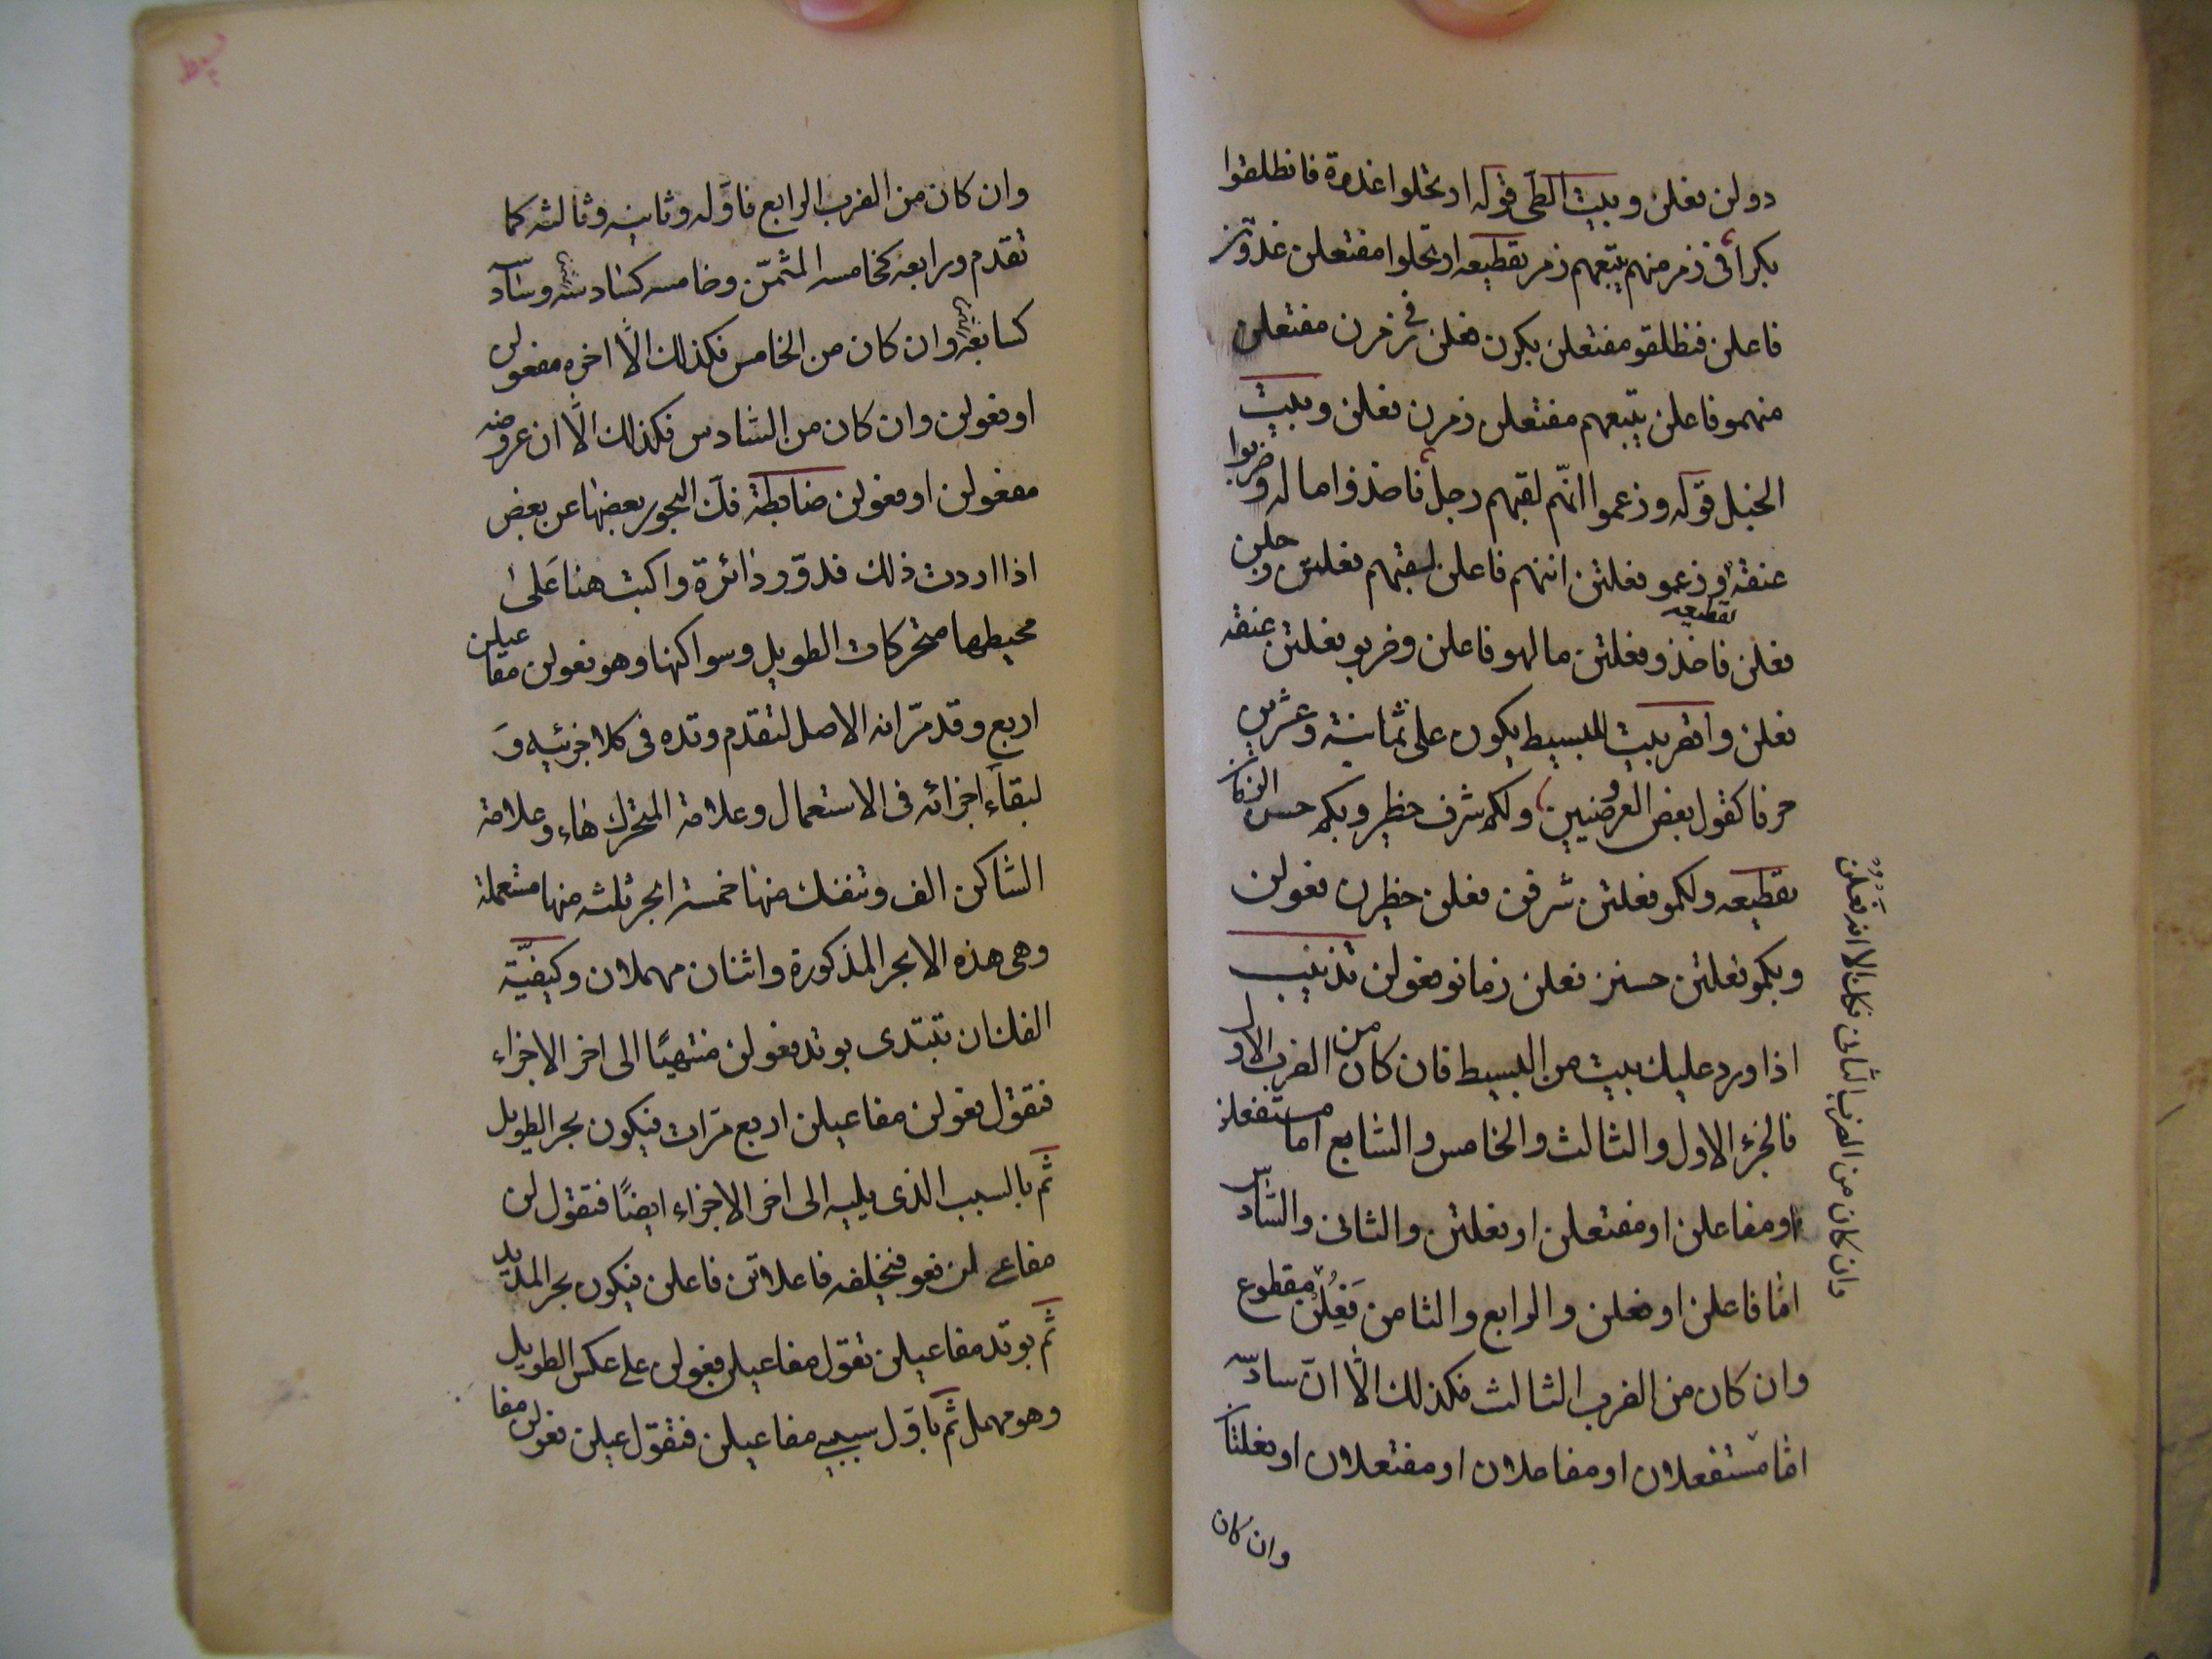 دولن فعلن وبيت الطى قوله ارتحلوا غدوة فانطلقوا
بكرا فى زمر منهم يتبعهم زمر تقطيعه ارتحلوا مفتعلن غدوتن
فاعلن فنطلقو مفتعلن بكرن فعلن فى زمرن مفتعلن
منهمو فاعلن يتبعهم مفتعلن زمرن فعلن وبيت
الخبل قوله وزعموا انّهم لقيهم رجل فاخذوا ماله وضربوا
عنقه وزعمو فعلتن اننهم فاعلن لقيهم فعلتن رجلن
تقطيعه
فعلن فاخذو فعلتن مالهو فاعلن وضربو فعلتن عنقه
فعلن واقصر بيت للبسيط يكون على ثمانية وعشرين
حرفا كقول بعض العروضيين ولكم شرف خطر وبكم حسن الزمان
تقطيعه ولكمو فعلتن شرفن فعلن خطرن فعولن
وبكمو فعلتن حسنز فعلن زمانو فعولن تذنيب
اذا ورد عليك بيت من البسيط فان كان من الضرب الاول
فالجزء الاول والثالث والخامس والسابع اما مستفعلن
او مفاعلن او مفتعلن او فعلتن والثانى والسادس
امّا فاعلن او فعلن والرابع والثامن فَعِلُنْ مقطوع
وان كان من الضرب الثالث فكذلك الّا انّ سادسه
امّا مستفعلان او مفاعلان او مفتعلان او فعلتان
وان كان من الضرب الثانى فكالاول الا انه فعلن
وان كان
وان كان من الضرب الرابع فاوّله وثانيه وثالثه كما
تقدم ورابعه كخامس المثمّن وخامسه كسادسه وسادسه
كسابعه وان كان من الخامس فكذلك الّا اخره مفعولن
او فعولن وان كان من السّادس فكذلك الّا ان عروضه
مفعولن او فعولن ضابطة فكّ البحور بعضها عن بعض
اذا اردت ذلك فدوّر دائرة واكتب هنا على
محيطها متحركات الطويل وسواكنها وهو فعولن مفاعيلن
اربع وقد مرّ انه الاصل لتقدم وتده فى كلا جزئيه و
لبقاء اجزائه فى الاستعمال وعلامة المتحرك هاء وعلامة
السّاكن الف وتنفك منها خمسة ابحر ثلثه منها مستعملة
وهى هذه الابحر المذكورة واثنان مهملان وكيفيّة
الفك ان تبتدى بوتد فعولن منتهيًا الى اخر الاجزاء
فتقول فعولن مفاعيلن اربع مرّات فيكون بحر الطويل
ثم بالسبب الذى يليه الى اخر الاجزاء ايضًا فتقول لن
مفاعى لن فعو فيخلفه فاعلاتن فاعلن فيكون بحر المديد
ثم بوتد مفاعيلن تقول مفاعيلن فعولن على عكس الطويل
وهو مهمل ثم باوّل سببى مفاعيلن فتقول عيلن فعولن مفا